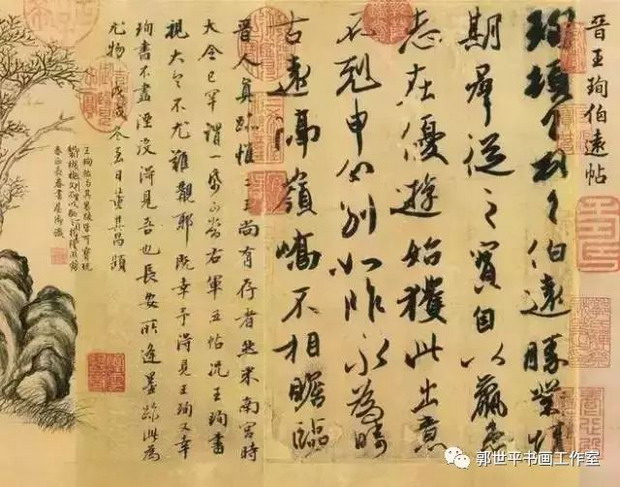 晉王珣伯遠帖
珣頓首頓首伯遠勝業情
期羣從之寶自以羸患
志在優遊始獲此出意
不剋申分别如昨永為疇
古遠隔嶺嶠不相瞻臨
晉人真跡惟二王尚有存者然米南宮時
大令已罕謂一紙可當右軍五帖况王珣書
視大令不尤難覯耶既幸予得見王珣又幸
珣書不盡湮没得見吾也長安所逢墨跡此為
尤物 戊戌冬至日董其昌題
春正長春書屋御識
郭世平书画工作室